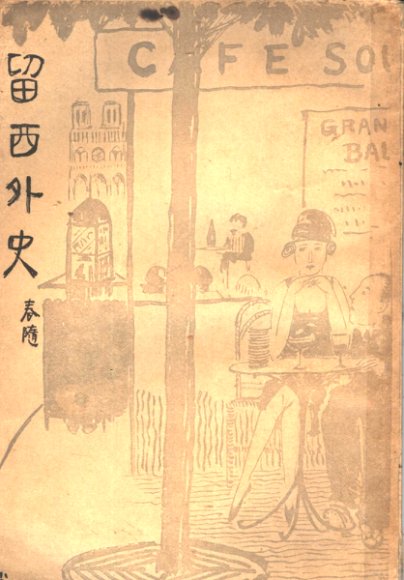 留西外史
春隨
CAFE SOU
GRAN
BAL